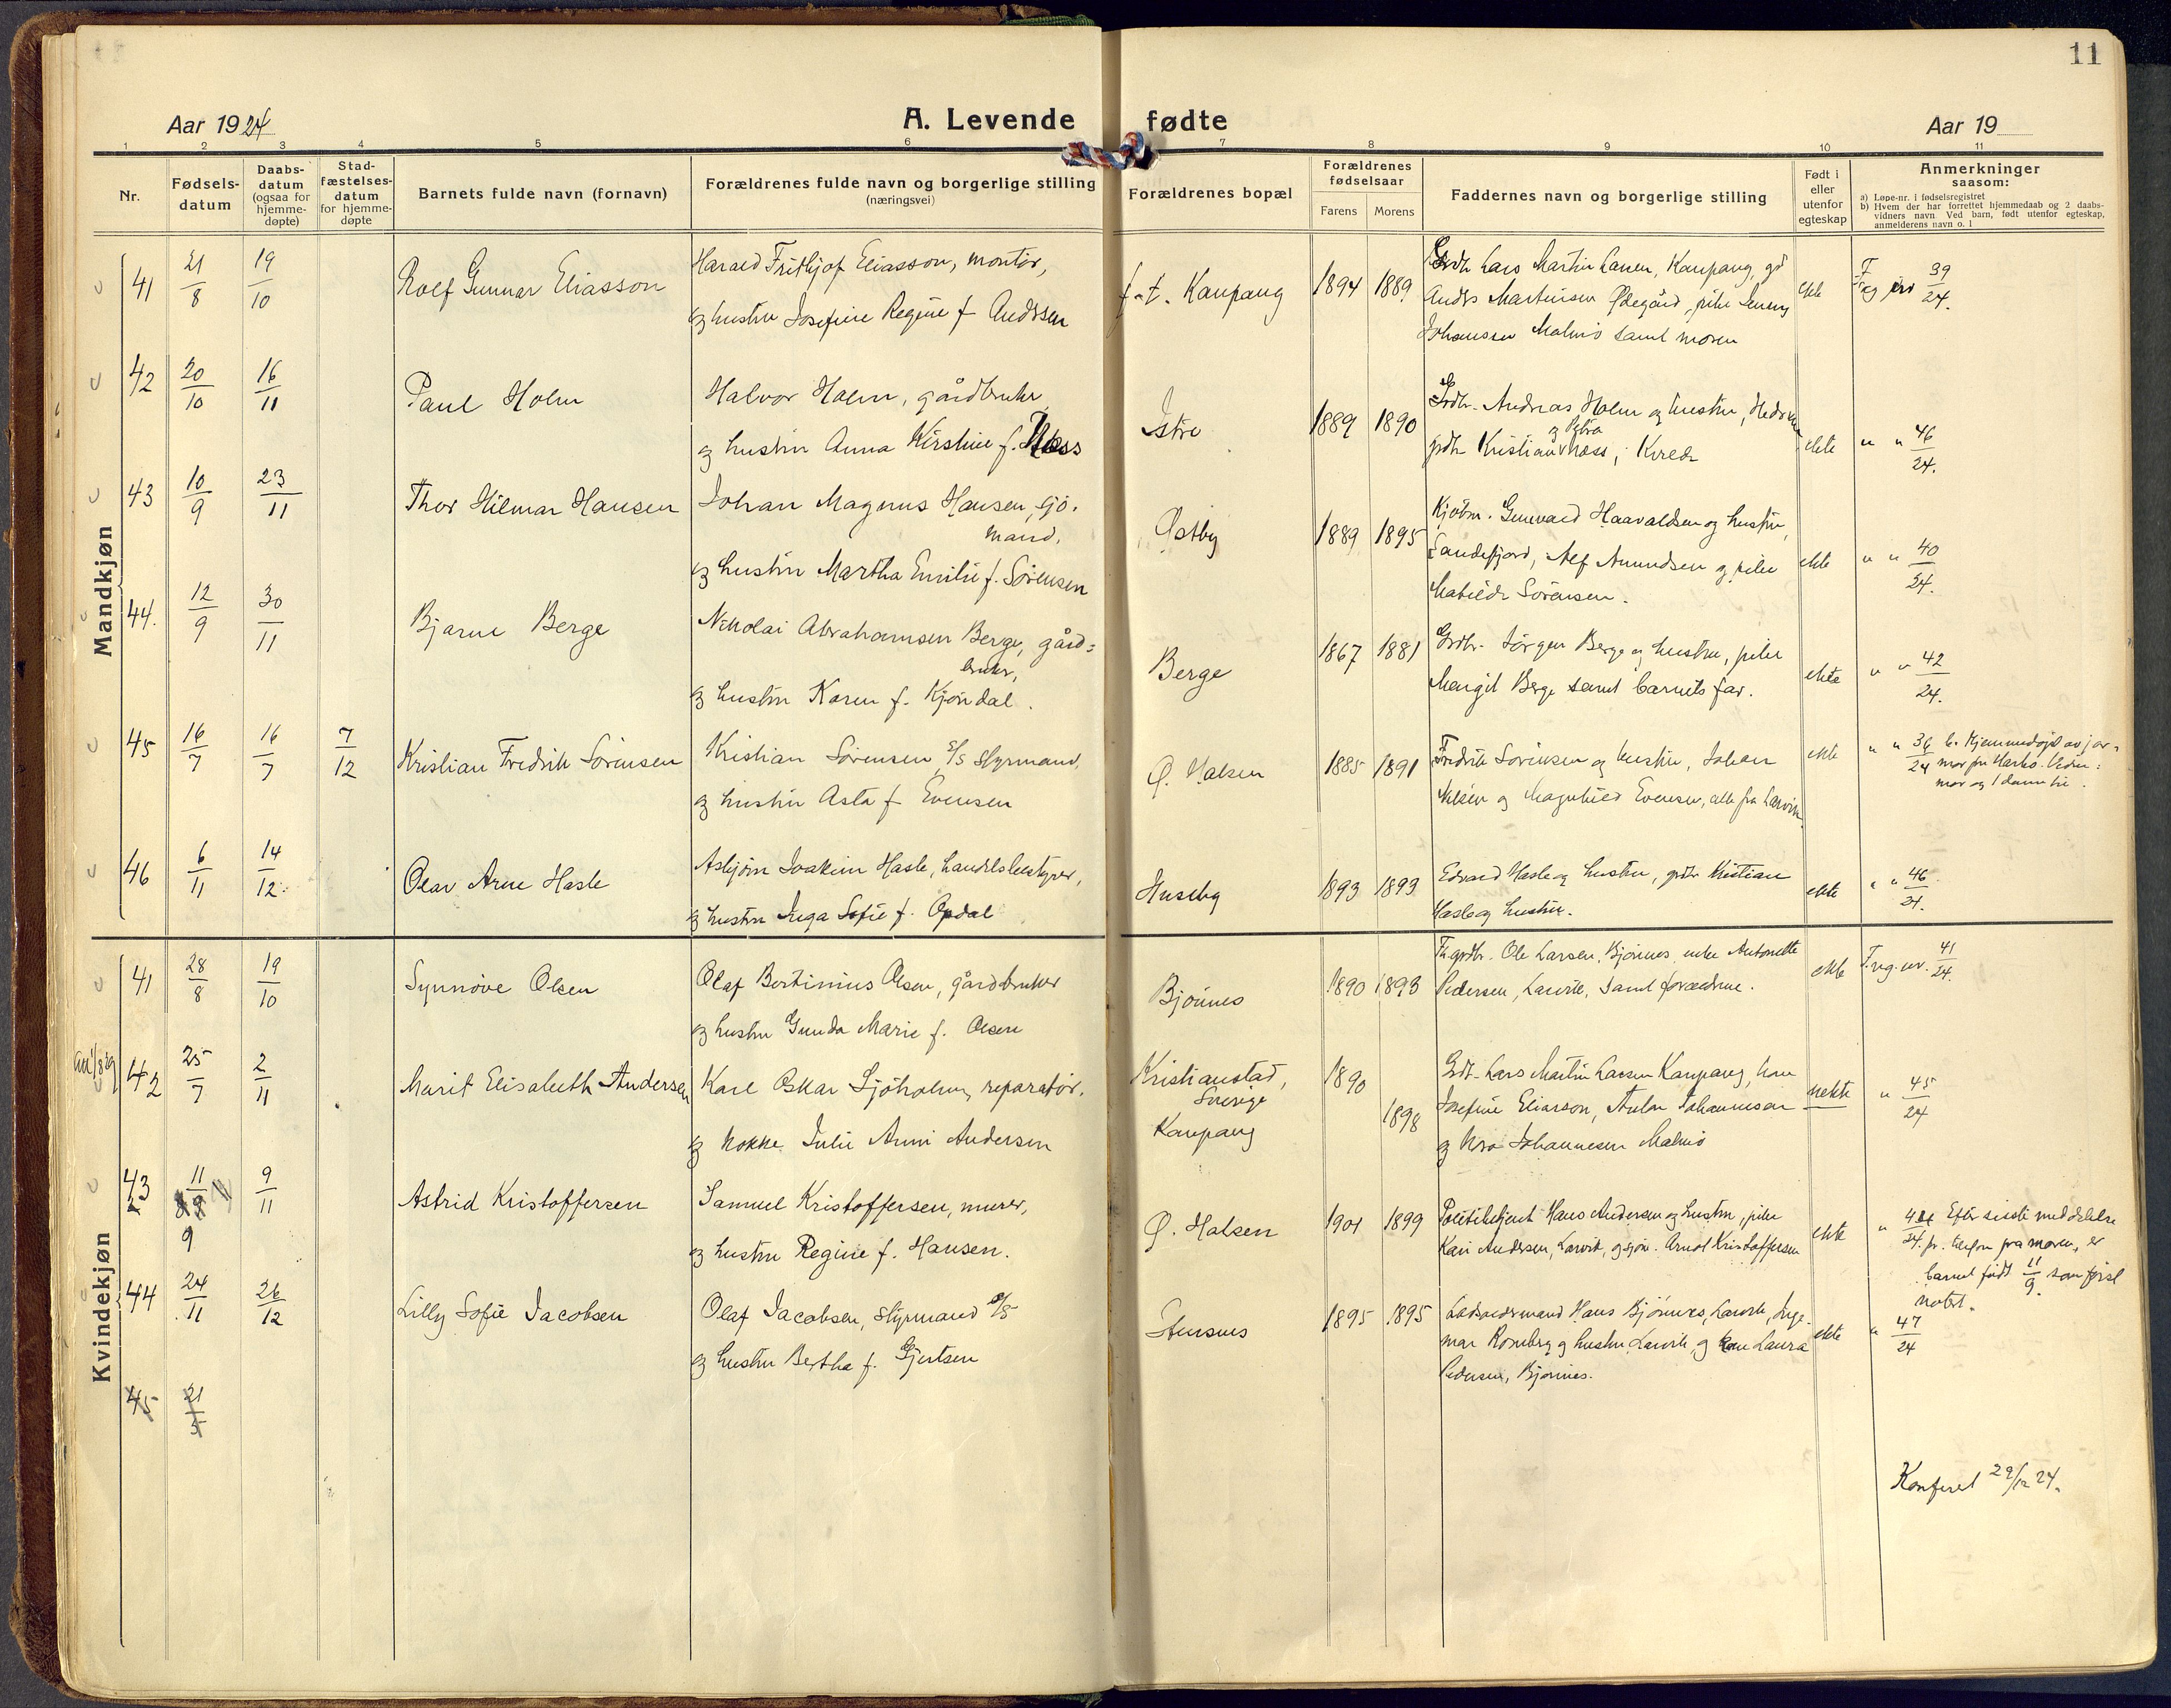 11
Aar 1924
A. Levende fødte
Aar 19
1 2 3 4 5 6 7 8 9 10 11
Nr.
Fødsels-
datum
Daabs-
datum
(ogsaa for
hjemme-
døpte)
Stad-
fæstelses-
datum
for hjemme-
døpte
Barnets fulde navn (fornavn)
Forældrenes fulde navn og borgerlige stilling
(næringsvei)
Forældrenes bopæl
Forældrenes
fødselsaar
Farens Morens
Faddernes navn og borgerlige stilling
Født i
eller
utenfor
egteskap
Anmerkninger
saasom:
a) Løpe-nr. i fødselsregistret
b) Hvem der har forrettet hjemmedaab og 2 daabs-
vidners navn. Ved barn, født utenfor egteskap,
anmelderens navn o. l
Mandkjøn
41 21/8 19/10 Rolf Gunnar Eliasson
Harald Frithjof Eliasson, montör,
og hustru Josefine Regine f. Anderssen
f.t. Kaupang 1894 1889
Grdbr. Lars Martin Larsen, Kaupang, gd
Anders Martinsen Ødegård, pike Jenny
Johansen Malmö samt moren
ekte
39/24.
42 20/10 16/11 Paul Holm
Halvor Holm, gårdbruker
og hustru Anna Kirstine f. Næss
Istre 1889 1890
Grdbr. Andreas Holm og hustru,
og Petra
gdbr Kristian Næss, Kvelde
ekte " " 46/24.
43 10/9 23/11 Thor Hilmar Hansen
Johan Magnus Hansen, sjö-
mand,
og hustru Martha Emilie f. Sörensen
Østby 1889 1895
Kjöbm. Gunvald Haavaldsen og hustru,
Sandefjord, Alf Amundsen og pike
Mathilde Sörensen.
ekte " " 40/24.
44. 12/9 30/11 Bjarne Berge
Nikolai Abrahamsen Berge, gård=
bruker,
og hustru Karen f. Kjöndal.
Berge 1867 1881
Grdbr. Jörgen Berge og hustru, pike
Margit Berge samt barnets far.
ekte " " 42/24.
45 16/7 16/7 7/12 Kristian Fredrik Sörensen
Kristian Sörensen, S/S styrmand,
og hustru Asta f. Evensen
Ø. Halsen 1885 1891
Fredrik Sörensen og hustru, Johan
Nilsen og Magnhild Evensen, alle fra Larvik
ekte " " 36/24 b. Hjemmedöpt av jor=
mor fru
mor og 1 dame til.
46 6/11 14/12. Olav Arne Hasle
Asbjörn Joakim Hasle, handelsbestyrer,
og hustru Inga Sofie f. Opdal
Huseby 1893 1893
Edvard Hasle og hustru, gdbr Kristian
Hasle og hustru.
ekte " " 46/24.
Kvindekjøn
41 28/8 19/10 Synnöve Olsen
Olaf Bertinius Olsen, gårdbruker
og hustru Gunda Marie f. Olsen
Bjönnes 1890 1893
Fh. grdbr. Ole Larsen, Bjönnes, enke Antonette
Pedersen, Larvik, samt forældrene.
ekte F. reg. nr. 41/24.
42 25/7 2/11 Marit Elisabeth Andersen
Karl Oskar Sjöholm, reparatör.
og kokke Julie Anni Andersen
Kristianstad, 1890
Sverige
Kaupang 1898
Gdbr. Lars Martin Larsen Kaupang, hm
Josefine Eliasson, Anton Johannesen
og Nora Johannesen Malmö
uekte " 45/24
43 11/9 9/11 Astrid Kristoffersen
Samuel Kristoffersen, murer,
og hustru Regine f. Hansen.
Ø. Halsen 1901 1899
Politibetjent Hans Andersen og hustru, pike
Kari Andersen, Larvik, og sjöm. Arnol Kristoffersen
ekte " 44/24. Efter sisste meddelelse
pr. telefon fra moren, er
barnet födt 11/9 som först
notert.
44 24/11 26/12 Lilly Sofie Jacobsen
Olaf Jacobsen, styrmand S/S
og hustru Bertha f. Gjertsen
Stensnes 1895 1895
Ladseiermand Hans Bjönnes, Larvik, Inge-
mar Romberg og hustru Larvik, og fru Laura
Pedersen, Bjönnes.
ekte " 47/24
45 21/5
Konferert 29/12 24.